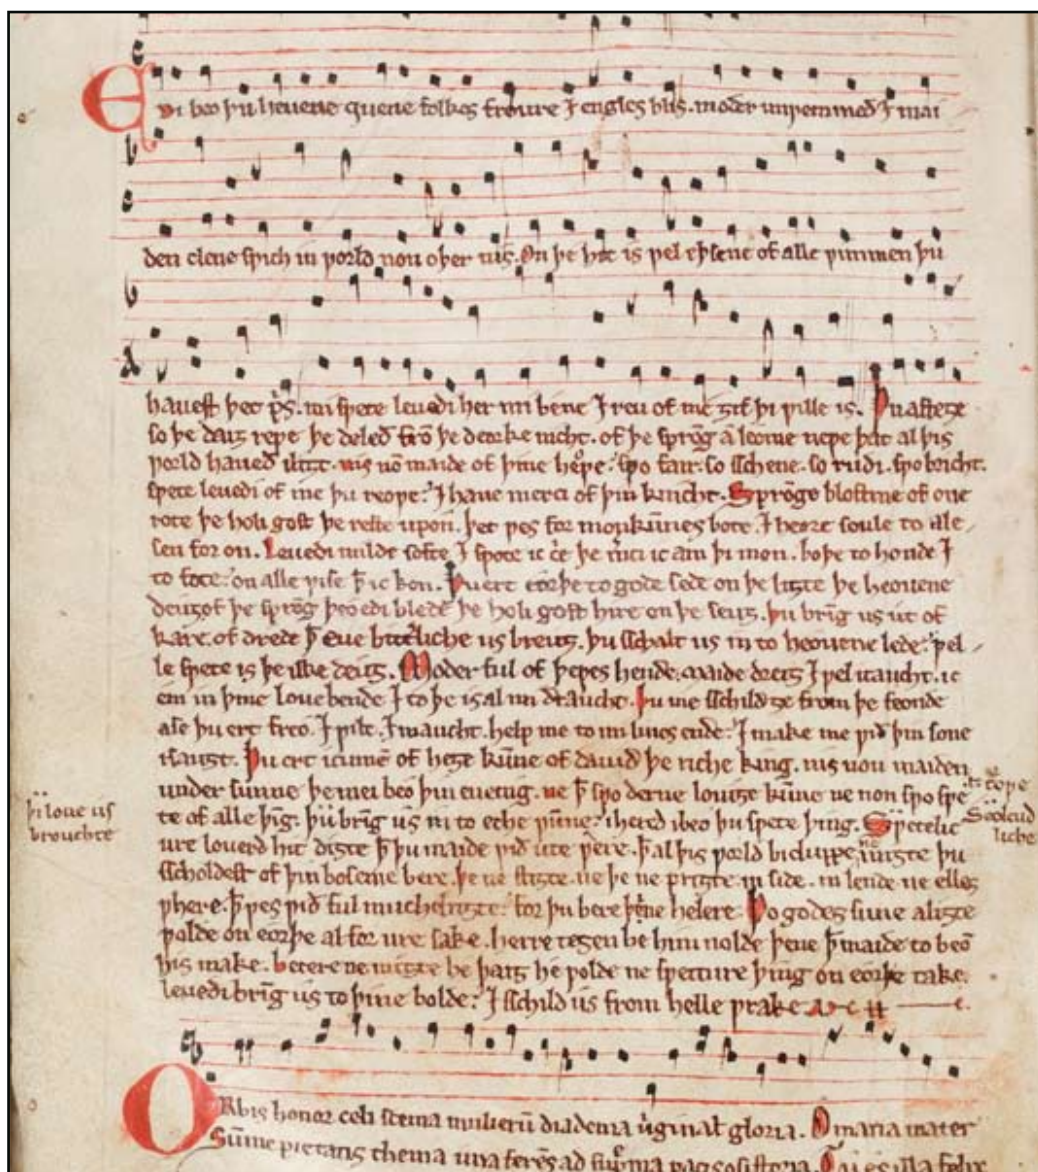 Edi beo þu hevene quene folkes froure ⁊ engles blis. moder unƿemmed ⁊ mai
den clene sƿich in ƿorld non oþer nis. On þe hit is ƿel eþsene of alle ƿimmen þu
havest þet pris. mi sƿete levedi her mi bene ⁊ reu of me ȝif þi ƿille is. Þu asteȝe
so þe daiȝ reƿe þe deleð frō þe deorke nicht. of þe sprōg a leome neƿe þat al þis
ƿorld haveð iliȝt. nis nō maide of þine heoƿe. sƿo fair. so sschene. so rudi. sƿo bricht.
sƿete levedi of me þu reoƿe. ⁊ have merci of þin knicht. Sprōge blostme of one
rote þe holi gost þe reste upon. þet ƿes for monkūnes bote. ⁊ heore soule to ale
sen for on. Levedi milde softe ⁊ sƿote ic c̄e þe m̄ci ic am þi mon. boþe to honde ⁊
to fote. on alle ƿise þ̄ ic kon. Þu ert eorþe to gode sede on þe liȝte þe heovene
deuȝ of þe sprōg þeo edi blede þe holi gost hire on þe seuȝ. þu brīg us ut of
kare. of drede þ̄ eve bitt̄liche us breuȝ. þu sschalt us in to heovene lede. ƿel
le sƿete is þe ilke deuȝ. Moder ful of þeƿes hende. maide dreiȝ ⁊ ƿel itaucht. ic
em in þine love bende ⁊ to þe is al mi draucht. þu me sschild ȝe from þe feonde
ase þu ert freo. ⁊ ƿilt. ⁊ maucht. help me to mi lives ende. ⁊ make me ƿið þin sone
isauȝt. Þu ert icumē of heȝe kūne of david þe riche king. nis non maiden
under sūnne þe mei beo þin evening. ne þ̄ sƿo derne loviȝe kūne ne non sƿo sƿe
te of alle þīg. þi love us brouchte
þu brīg us in to eche ƿūne. ihered ibeo þu sƿete þing. Sƿetelic
ure loverd hit diȝte þ̄ þu maide ƿið ute ƿere. þ̄ al þis ƿorld bicluppe ne miȝte þu
sscholdest of þin boseme bere. þe ne stiȝte. ne þe ne priȝte. in side. in lende ne elles
ƿhere. þ̄ ƿes ƿið ful muchel riȝte. for þu bere þine helere. Þo godes sune aliȝte
ƿolde on eorþe al for ure sake. herre teȝen he him nolde þene þ̄ maide to beo
his make. betere ne miȝte he þaiȝ he ƿolde ne sƿetture þing on eorþe take.
levedi brīg us to þine bolde. ⁊ sschild us from helle ƿrake amen
Orbis honor celi scema mulierū diadema v̄ginal̄ gloria. O maria mater